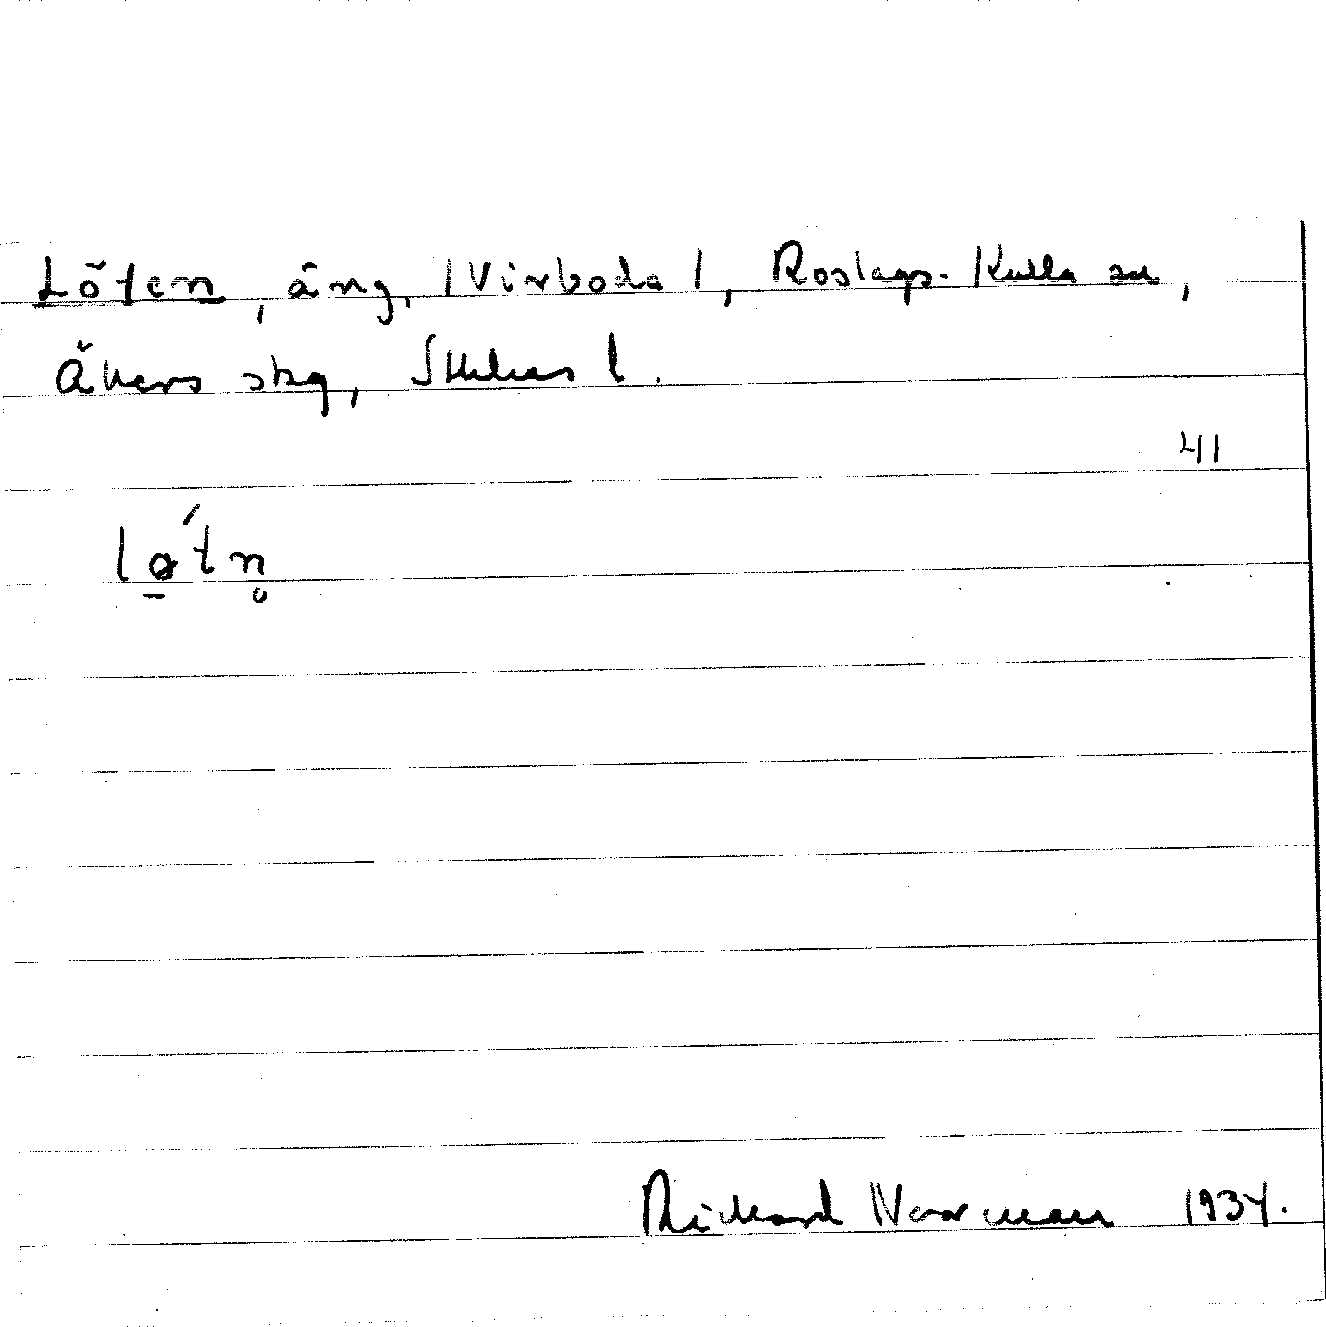 Löten, äng, Virboda, Roslags-Kulla sn,
Åkers skg, Sthlms l.
41
lø̱´tn̥
Rickard Norman 1934.